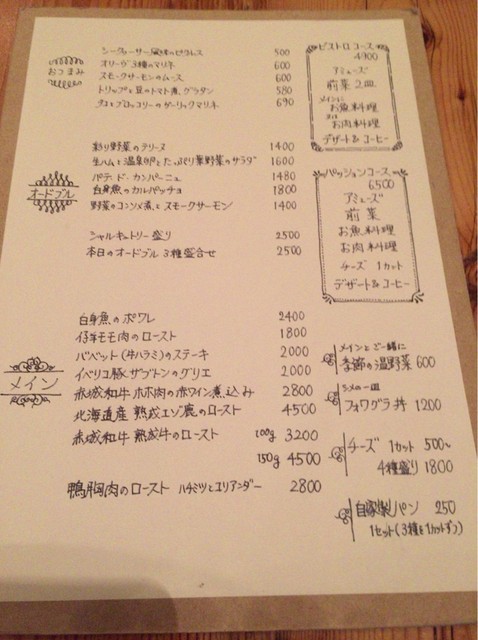 おつまみ
シークヮーサー風味のピクルス 500
オリーヴ3種のマリネ 600
スモークサーモンのムース 600
トリップと豆のトマト煮、グラタン 580
タコとブロッコリーのガーリックマリネ 690
オードブル
彩り野菜のテリーヌ 1400
生ハムと温泉卵とたっぷり葉野菜のサラダ 1600
パテ・ド・カンパーニュ 1480
白身魚のカルパッチョ 1800
野菜のコンソメ煮とスモークサーモン 1400
シャルキュトリー盛り 2500
本日のオードブル 3種盛合せ 2500
メイン
白身魚のポワレ 2400
仔羊モモ肉のロースト 1800
バベット(牛ハラミ)のステーキ 2000
イベリコ豚、ザブトンのグリエ 2000
赤城和牛 ホホ肉の赤ワイン煮込み 2800
北海道産 熟成エゾ鹿のロースト 4500
赤城和牛 熟成牛のロースト 100g 3200
150g 4500
鴨胸肉のロースト ハチミツとコリアンダー 2800
ビストロコース
4900
アミューズ
前菜2皿
メインに
お魚料理
又は
お肉料理
デザート&コーヒー
パッションコース
6,500
アミューズ
前菜
お魚料理
お肉料理
チーズ 1カット
デザート&コーヒー
メインとご一緒に
季節の温野菜 600
シメの一皿
フォワグラ丼 1200
チーズ 1カット 500~
4種盛り 1800
自家製パン 250
1セット(3種を1カットずつ)